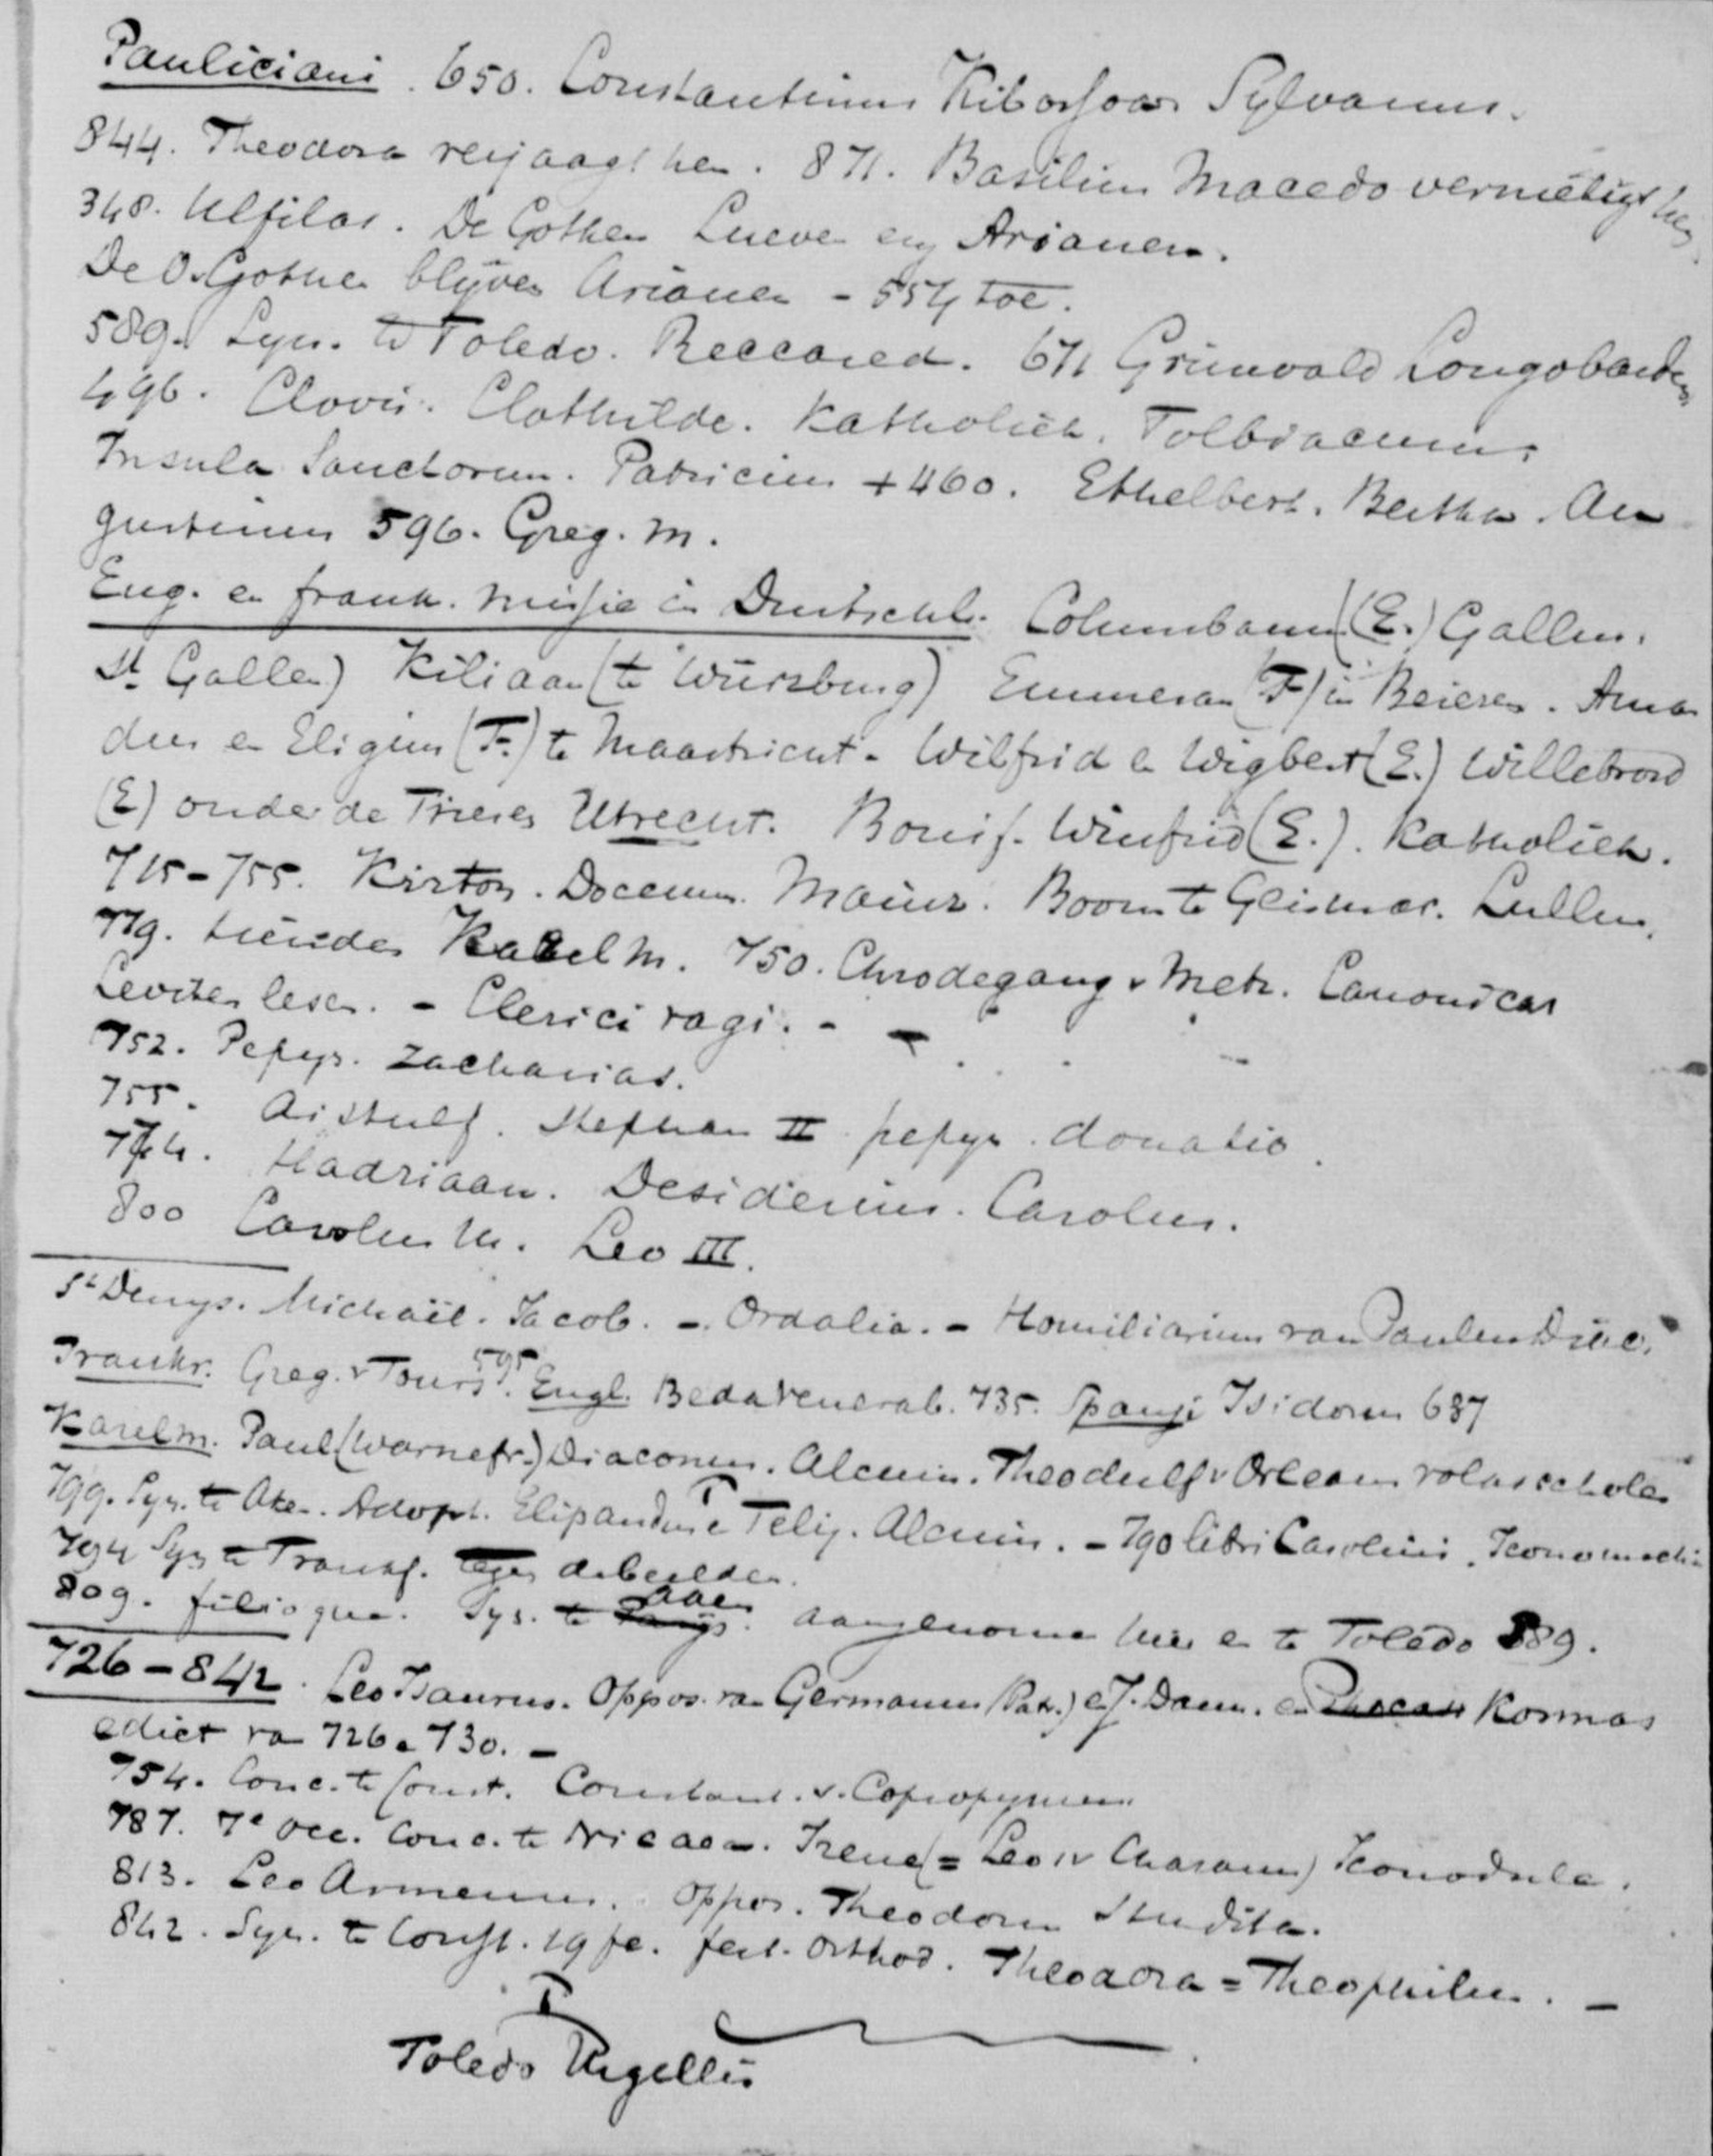 Pauliciani. 650. Constantinus Kibossa Sylvanus.
844. Theodora verjaagt hen. 871. Basilius Macedo vernietigt hen
348. Ulfilas. De Gothen Sueven en Arianen.
De O. Gothen blijven Arianen - 554 toe.
589. Syn. te Toledo. Reccared. 671 Grimvald Longobarden
496. Clovis. Clothilde. Katholiek. Tolbiacum.
Insula Sanctorum. Patricius + 460. Ethelbert. Bertha. Au
gustinus 596. Greg. M.
Eng. en frank. missie in Duitschl. Columbanus (E.) Gallus.
St Gallen) Kiliaan (te Würzburg) Emmeran (F.) in Beieren. Aman
dus en Eligius (F.) te Maastricht. Wilfrid en Wigbert (E.) Willebrord
(E) onder de Friezen Utrecht. Bonif. Winfrid (E.). Katholiek.
715-755. Kirton. Doccum. Mainz. Boom te Geismar. Lullus.
779. tienden Karel M. 750. Chrodegang v Metz. Canonicas
Levieten lesen. - Clerici vagi. -
752. Pepijn. Zacharias.
755. Aistulf. Stephan II pepijn. donatio.
774. Hadriaan. Desiderius. Carolus.
800 Carolus M. Leo III.
St Denys. Michaël. Jacob. - Ordalia. - Homiliarium van Paulus Diac.
Frankr. Greg. v Tours 595. Engl. Beda Venerab. 735. Spanje Isidorus 637
Karel m. Paul (Warnefr.) Diaconus. Alcuin. Theodulf v Orleans volksscholen
799. Syn. te Aken. Adopt. Elipandus en Felix. Alcuin. - 790 libri Carolini. Iconomachie
794 Syn te Frankf. tegen de beelden.
809. filioque. Syn. te Aken aangenomen hier en te Toledo 589.
726-842. Leo Isaurus. Oppos. van Germanus (Patr.) en J. Dam. en Kosmas
edict van 726 en 730. -
754. Conc. te Const. Constant. v. Copronymus
787. 7e oec. Conc. te Nicaea. Irene (= Leo IV Chazarus) Iconodule.
813. Leo Armenus. Oppos. Theodorus Studita.
842. Syn. te Const. 19 fe. fest. Orthod. Theodora = Theophilus. -
Toledo Urgellis